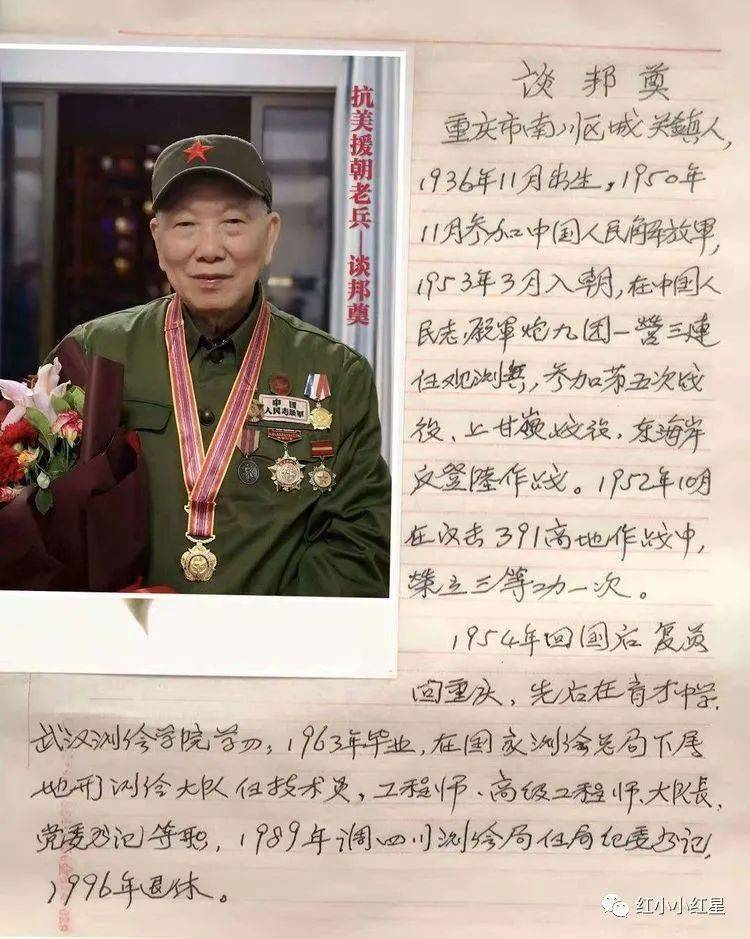 抗美援朝老兵—谈邦奠
中国
人民志愿军
谈邦奠
重庆市南川区城关鎮人,
1936年11月出生,1950年
11月参加中国人民解放軍,
1953年3月入朝,在中国人
民志愿軍炮九团一营三連
任观测兵,参加第五次战
役、上甘嶺战役,东海岸
反登陸作战。1952年10月
在反击391高地作战中,
榮立三等功一次。
1954年回国后复员
回重庆,先后在育才中学、
武汉测绘学院学习;1963年毕业,在国家测绘总局下属
地形测绘大队任技术员,工程师、高级工程师、大队长、
党委书记等职,1989年调四川测绘局任局纪委书记,
1996年退休。
红小小红星